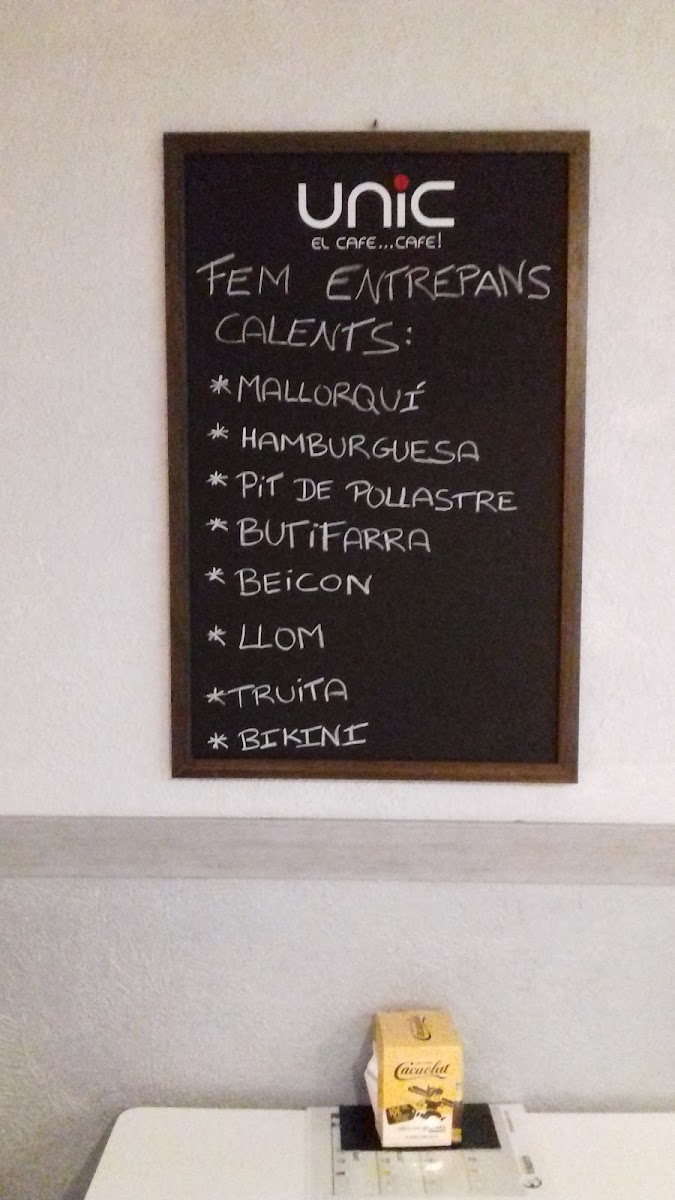 UNIC
EL CAFE...CAFE!
FEM ENTREPANS
CALENTS:
* MALLORQUÍ
* HAMBURGUESA
* PiT DE POLLASTRE
* BUTiFARRA
* BEiCON
* LLOM
* TRUiTA
* BIKINI
Cacaolat